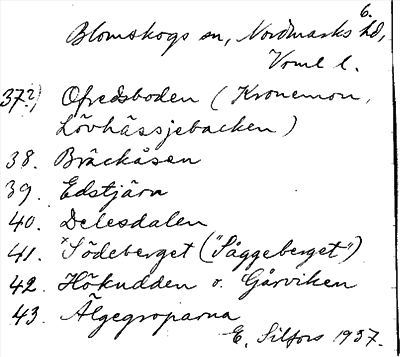 6.
Blomskogs sn, Nordmarks hd,
Vrml l.
37²) Ofredsboden (Kronemon,
Lövhässjebacken)
38. Bräckåsen
39. Edstjärn
40. Delesdalen
41. ˣSödeberget ("Såggeberget")
42. Hökudden v. Gårviken
43. Älgegroparna
E. Silfors 1937.